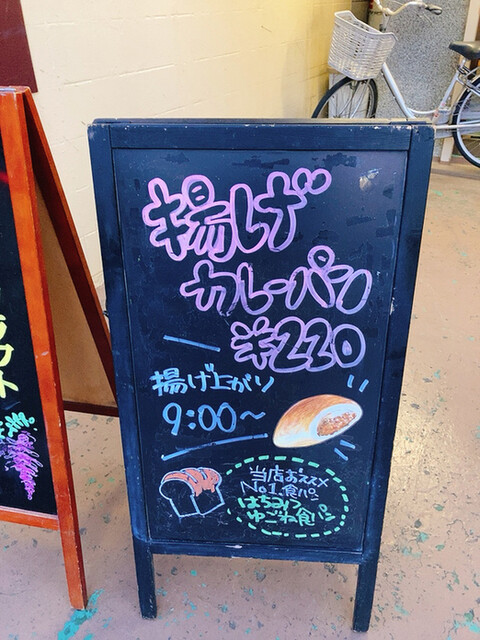 揚げ
カレーパン
¥220
揚げ上がり
9:00～
当店おススメ
No.1食パン
はちみつ
ゆごね食パン